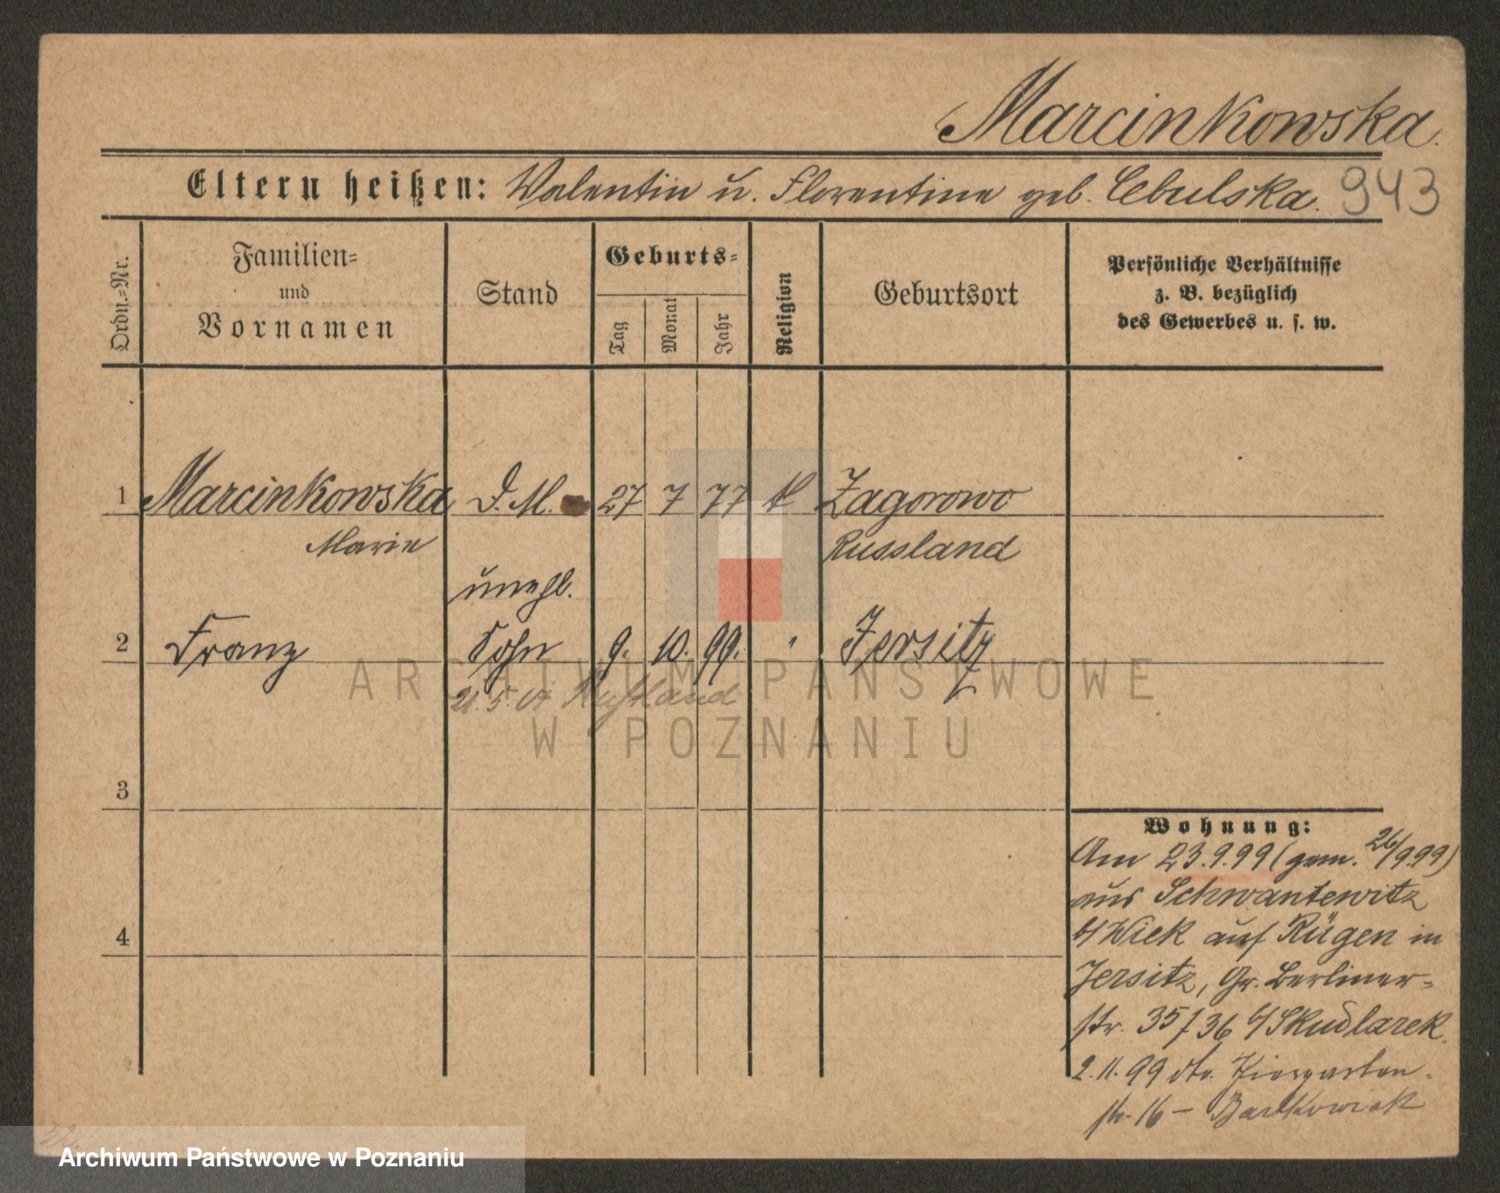 Marcinkowska.
Eltern heißen: Valentin u. Florentine geb. Cebulska. 943
Ordn.-Nr.
Familien-
und
Vornamen
Stand
Geburts-
Tag
Monat
Jahr
Religion
Geburtsort
Persönliche Verhältnisse
z. B. bezüglich
des Gewerbes u. s. w.
1 Marcinkowska D. M. 27 7 77 k Zagorowo
Marie Russland
unehl.
2 Franz Sohn 9. 10. 99. " Jersitz
21.5.07 Rußland
3
4
Wohnung:
Am 23.9.99 (gem. 26/9.99)
aus Schwantewitz
b/ Wiek auf Rügen in
Jersitz, Gr. Berliner-
str. 35/36 b/ Skudlarek.
2.11.99 dto. Thiergarten-
str. 16 - Bartkowiak
ARCHIWUM PAŃSTWOWE
W POZNANIU
Archiwum Państwowe w Poznaniu